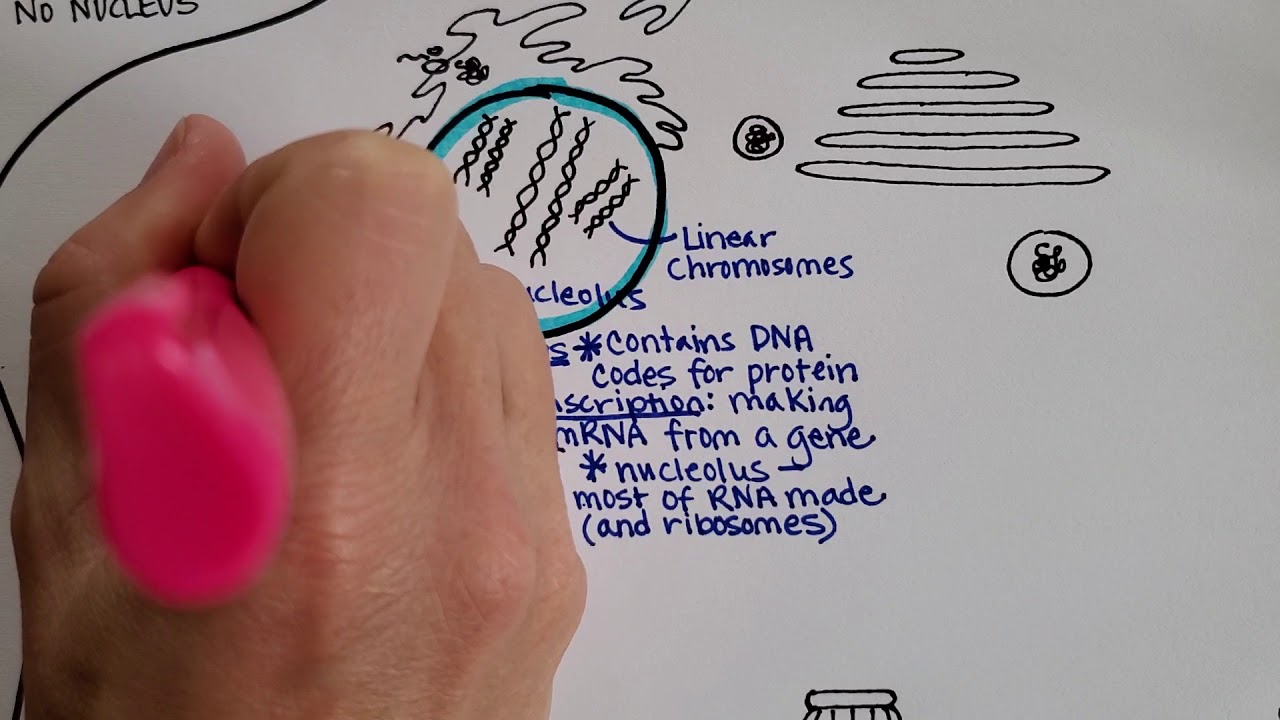 NO NUCLEUS
Linear
Chromosomes
ucleolus
s * Contains DNA
codes for protein
nscription: making
mRNA from a gene
* nucleolus →
most of RNA made
(and ribosomes)